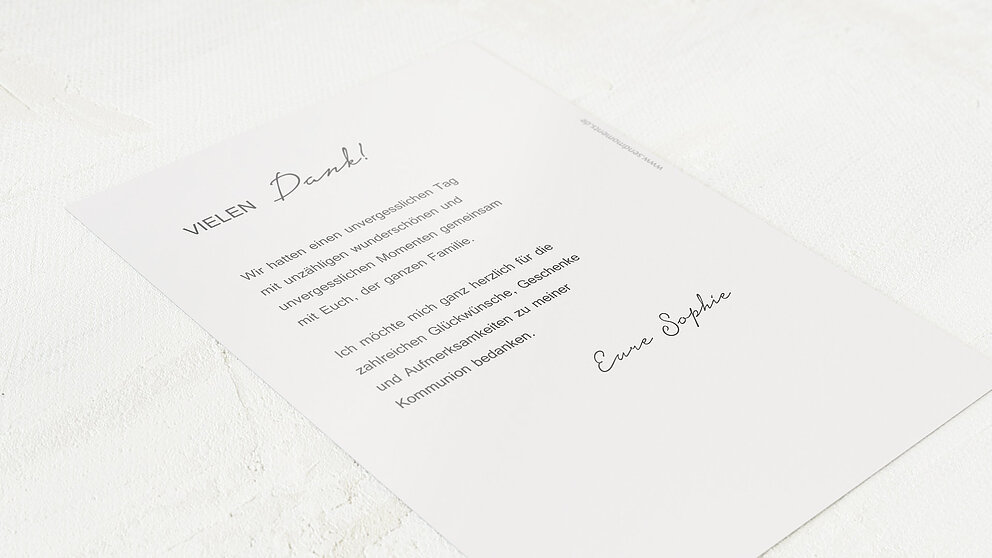 VIELEN Dank!
Wir hatten einen unvergesslichen Tag
mit unzähligen wunderschönen und
unvergesslichen Momenten gemeinsam
mit Euch, der ganzen Familie.
Ich möchte mich ganz herzlich für die
zahlreichen Glückwünsche, Geschenke
und Aufmerksamkeiten zu meiner
Kommunion bedanken.
Eure Sophie
www.sendmoments.de